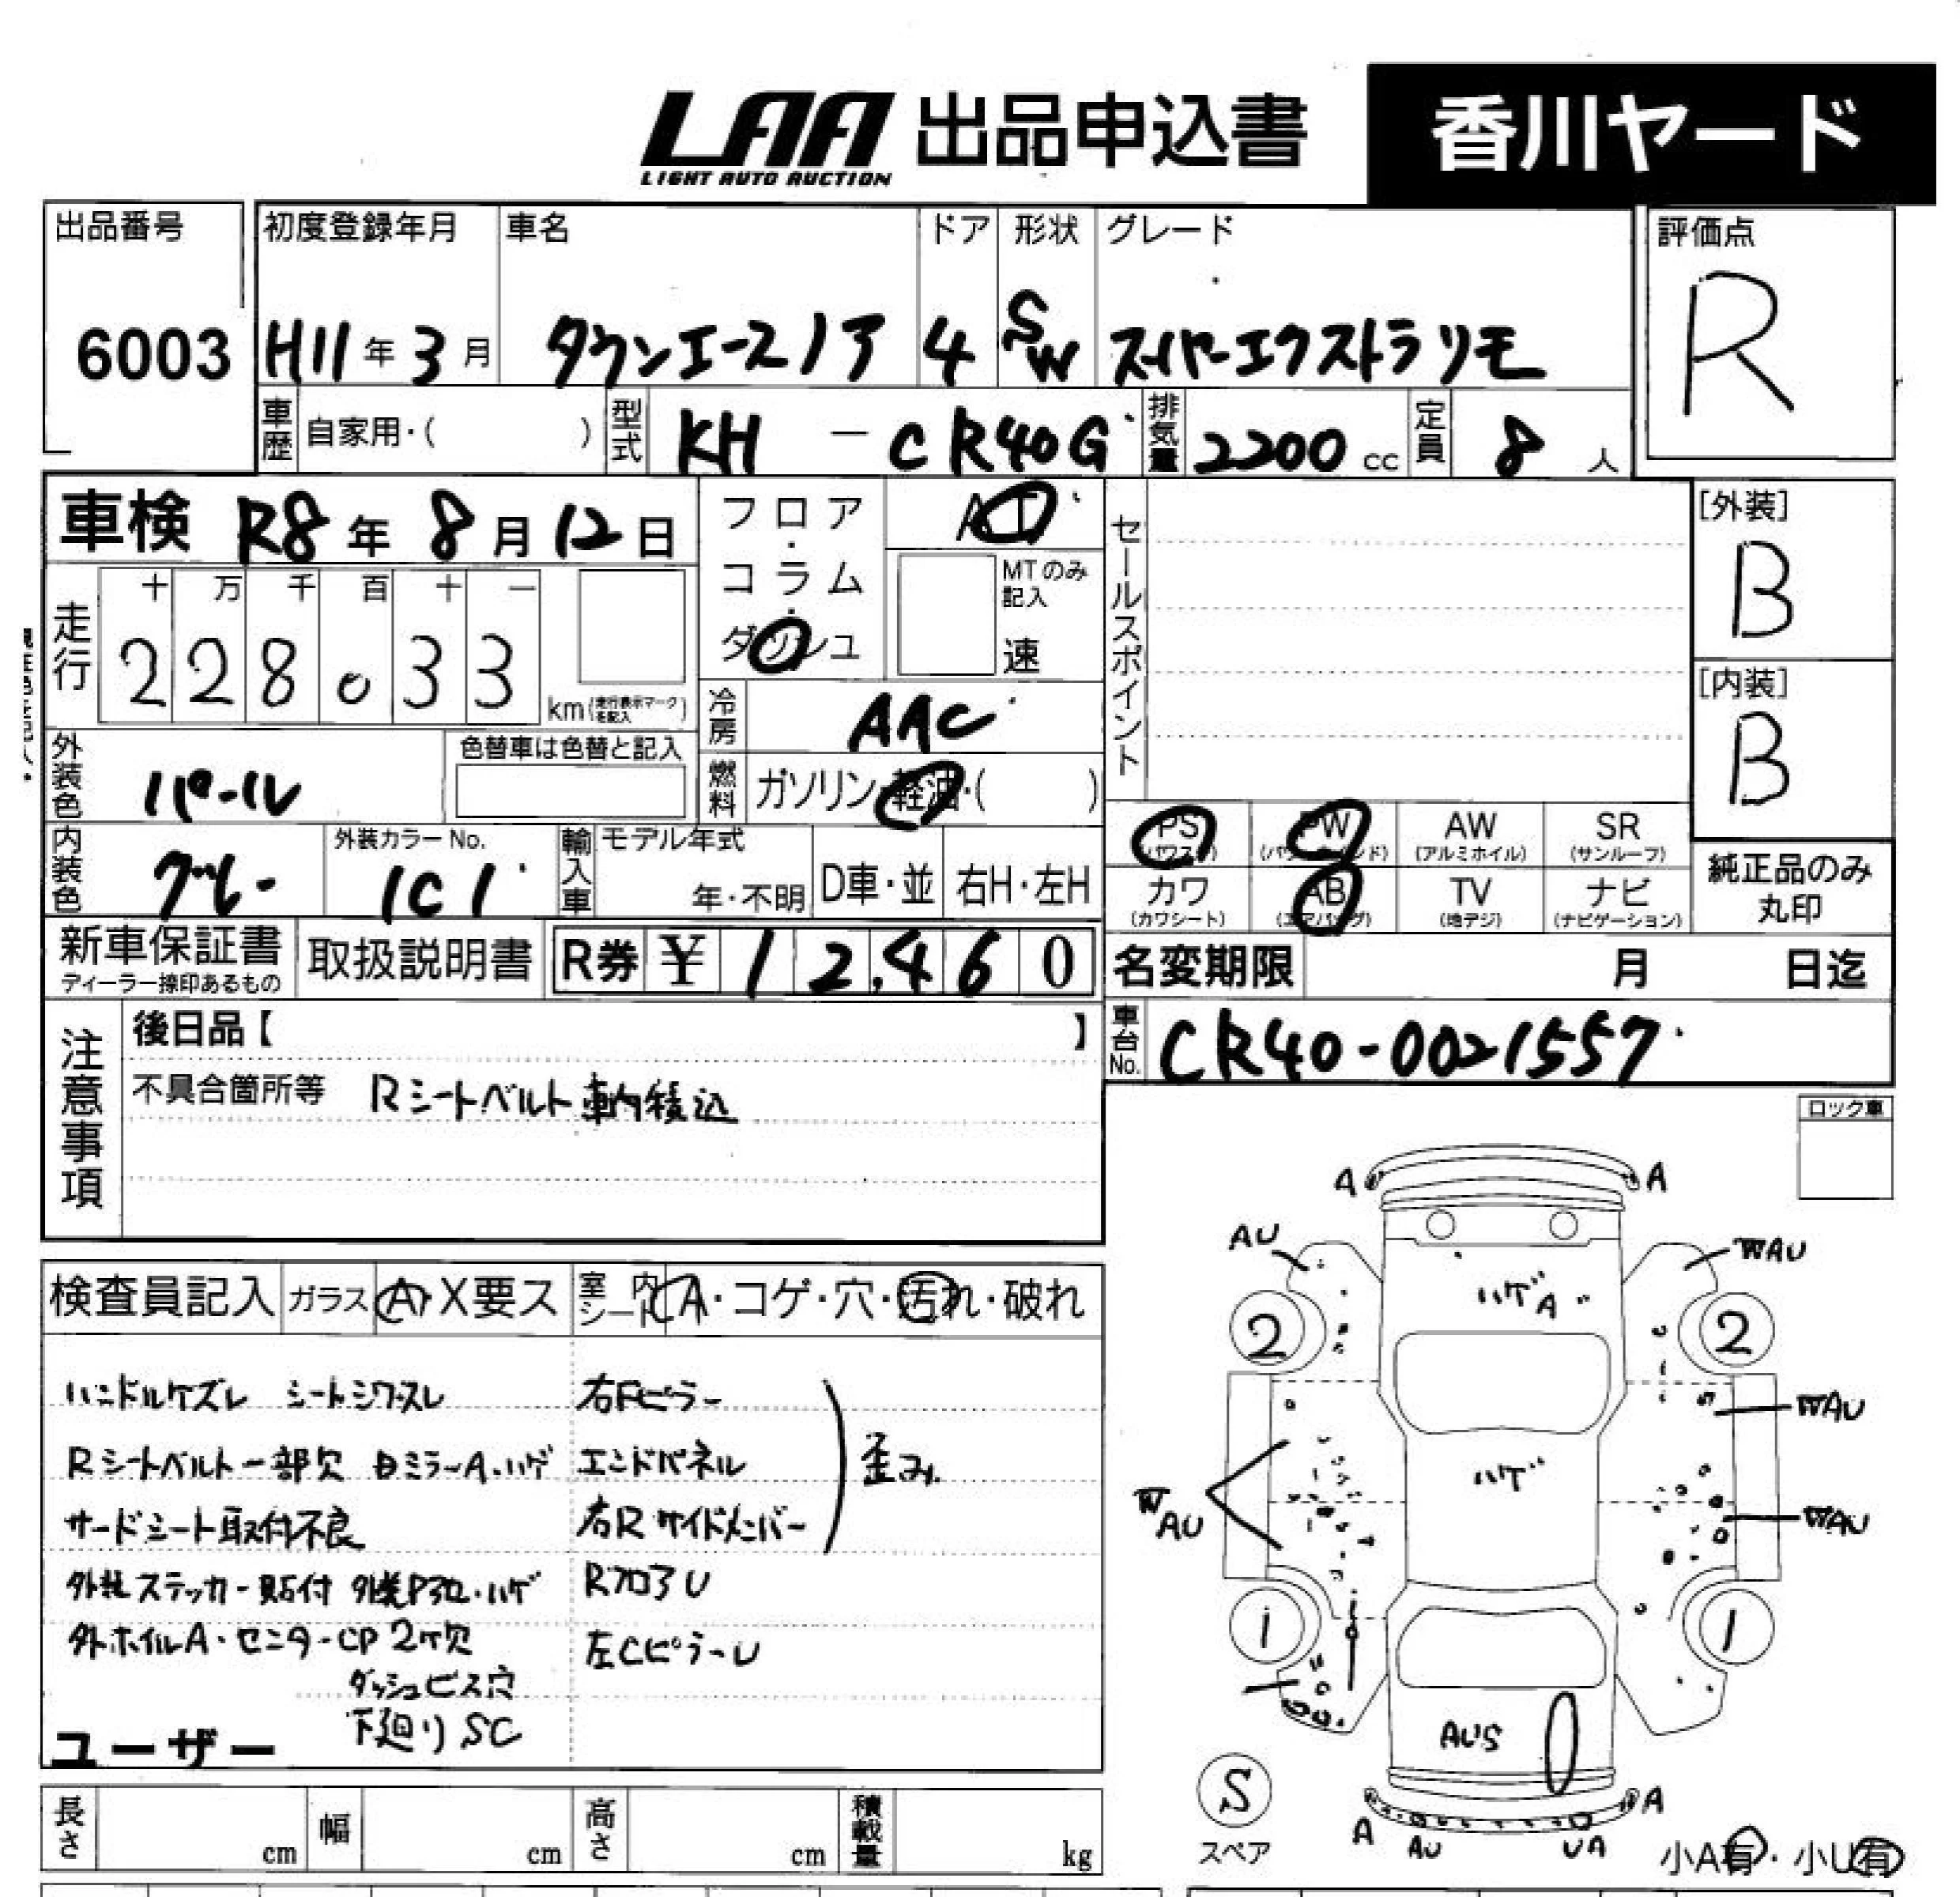 LAA 出品申込書 香川ヤード
LIGHT AUTO AUCTION
出品番号 初度登録年月 車名 ドア 形状 グレード 評価点
6003 H11年3月 タウンエースノア 4 SW スーパーエクストラリモ R
車歴 自家用・( ) 型式 KH - CR40G 排気量 2200 cc 定員 8 人
車検 R8年 8月 12日 フロア・コラム・ダッシュ AT セールスポイント [外装]
B
十 万 千 百 十 一 MTのみ記入
走行 2 2 8 0 3 3 km(走行表示マークを記入) 速 [内装]
B
冷房 AAC
外装色 パール 色替車は色替と記入 燃料 ガソリン・軽油・( )
PS PW AW SR
(パワステ) (パワーウインド) (アルミホイル) (サンルーフ)
内装色 グレー 外装カラーNo. 1C1 輸入車 モデル年式 年・不明 D車・並 右H・左H
カワ AB TV ナビ 純正品のみ
(カワシート) (エアバッグ) (地デジ) (ナビゲーション) 丸印
新車保証書 取扱説明書 R券 ¥ 1 2,4 6 0 名変期限 月 日迄
ディーラー捺印あるもの
注意事項 後日品【 】 車台No. CR40-0021557
不具合箇所等 Rシートベルト車内積込
ロック車
検査員記入 ガラス A・X要ス 室内シート A・コゲ・穴・汚れ・破れ
ハンドルケズレ シートシワ・スレ 右Fピラー
Rシートベルト一部欠 ミラーA.ハゲ エンドパネル 歪み
サードシート取付不良 右Rサイドメンバー
外装ステッカー貼付 ・ハゲ RフロアU
外ホイルA・センターCP2ケ欠 左CピラーU
ダッシュビス穴
下廻りSC
ユーザー
A A
AU WAU
ハゲA
2 2
WAU
ハゲ
WAU WAU
1 1
AUS
S
スペア
A A
AU UA
小A有・小U有
長さ cm 幅 cm 高さ cm 積載量 kg